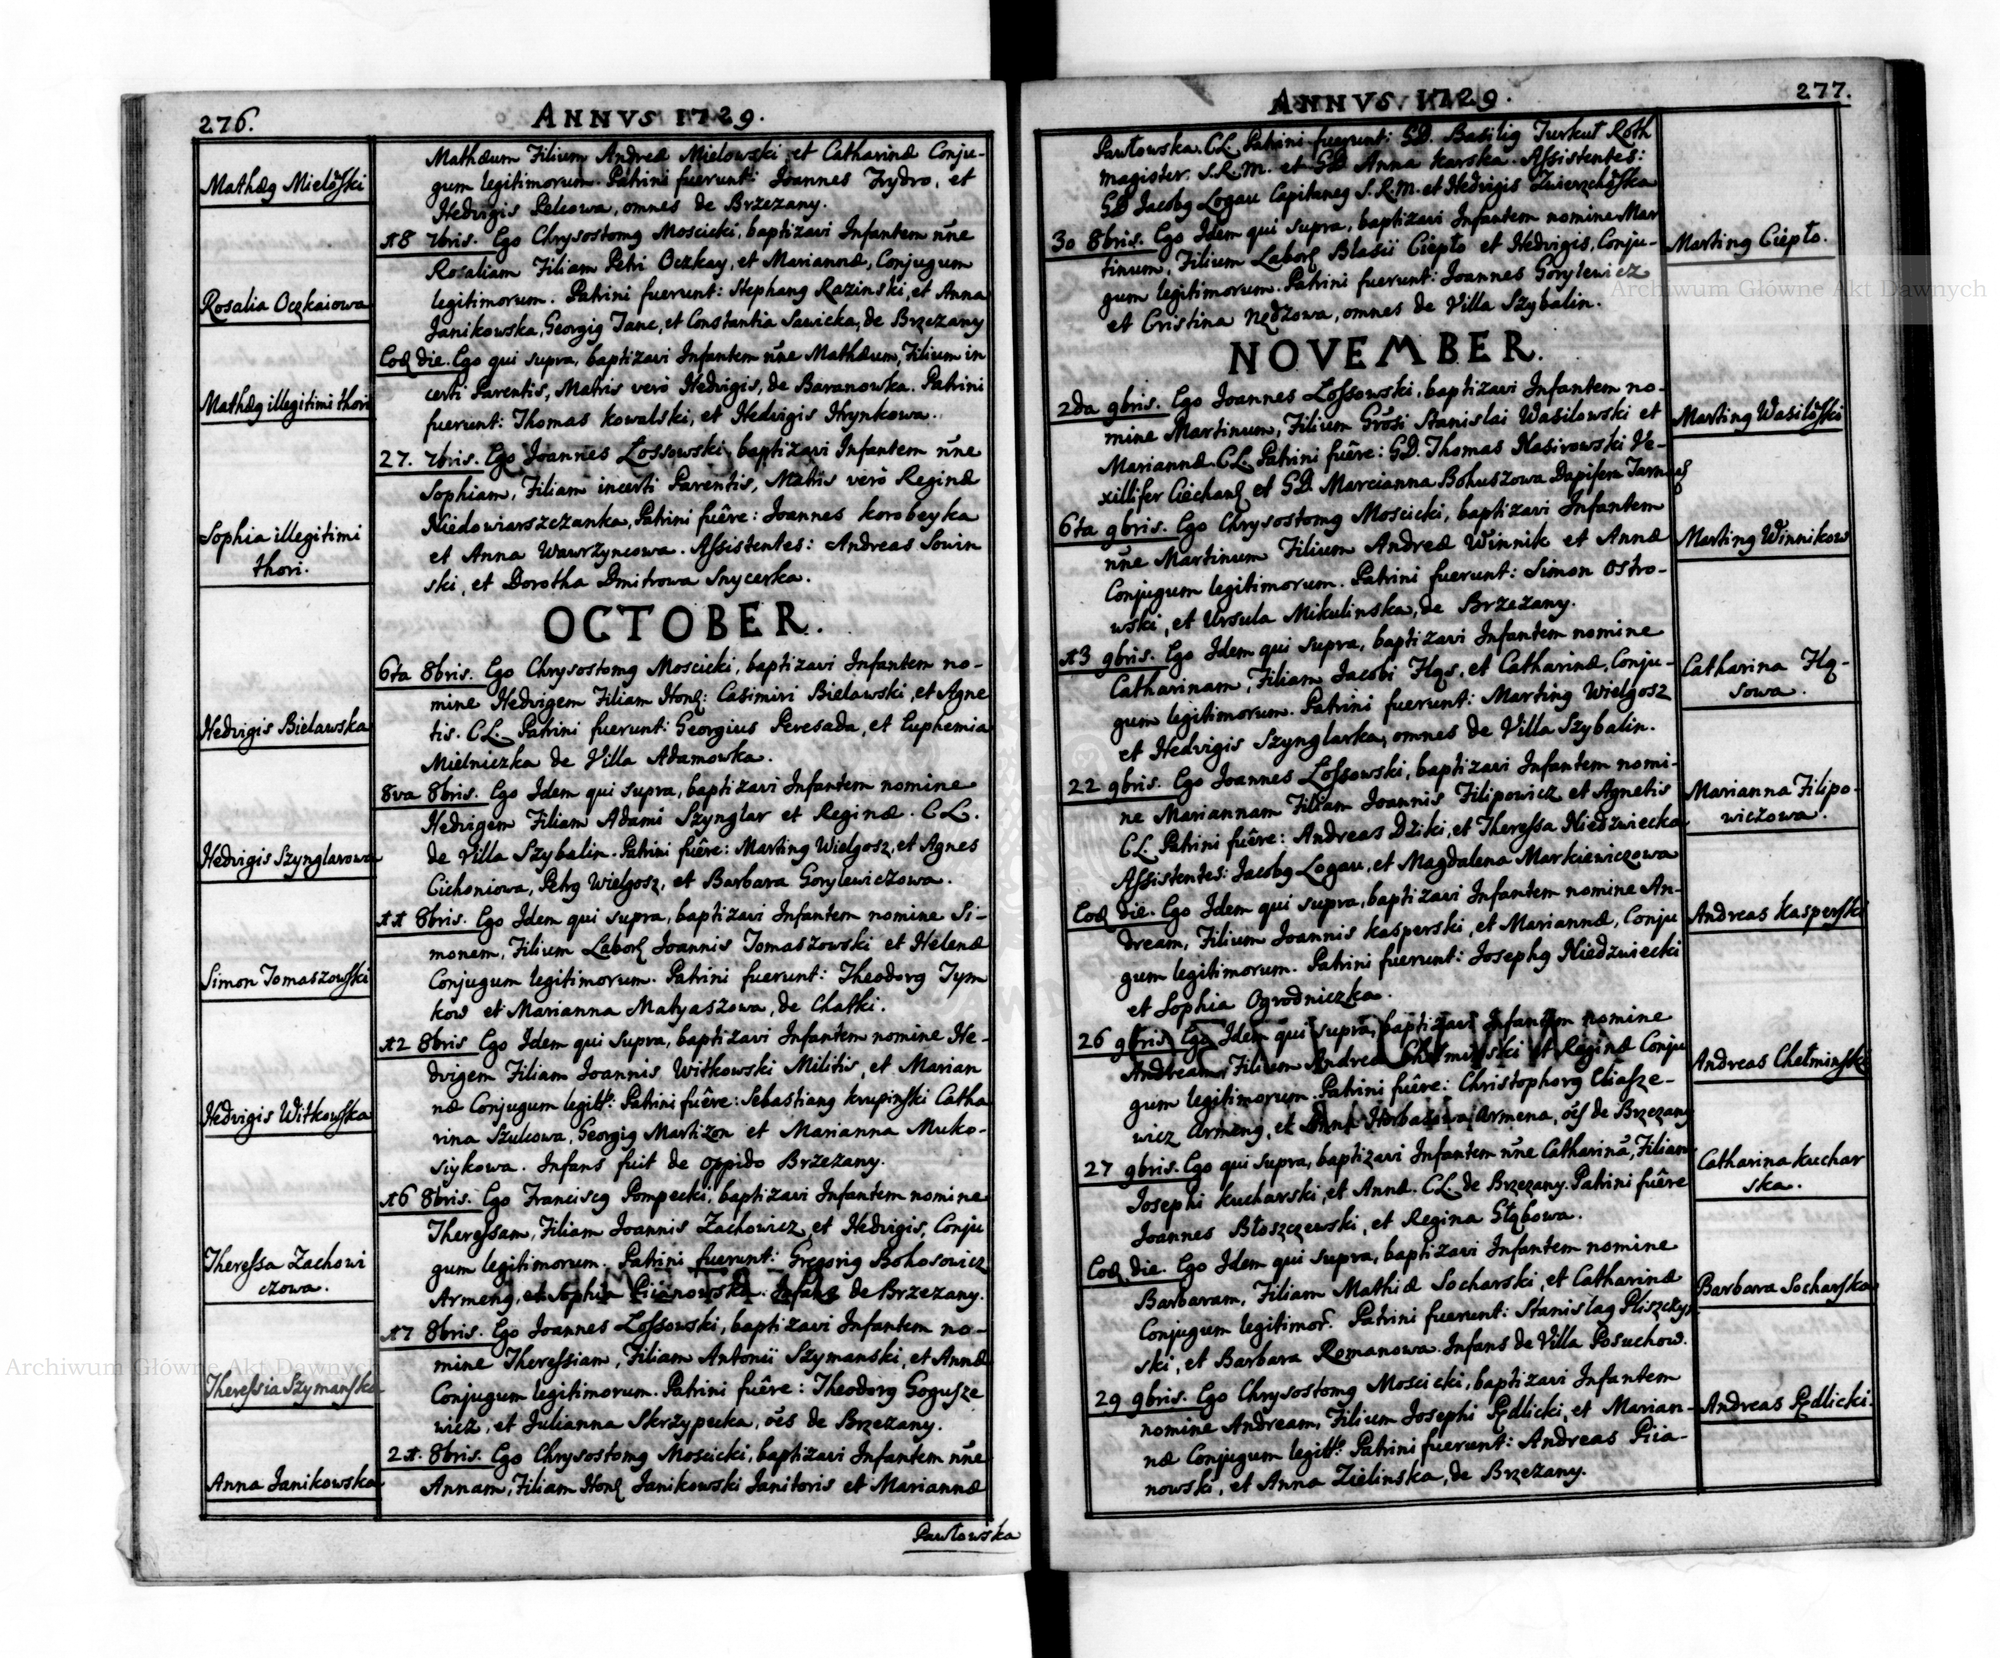 276.
ANNVS 1729.
Mathæg Mielowski
Mathæum Filium Andreæ Mielowski et Catharinæ Conju-
gum legitimorum. Patrini fuerunt: Joannes Frydro, et
Hedvigis Pelcowa, omnes de Brzezany.
18 7bris. Ego Chrysostomg Moscicki, baptizavi Infantem nñe
Rosalia Oczkaiowa
Rosaliam Filiam Petri Oczkay, et Mariannæ, Conjugum
legitimorum. Patrini fuerunt: Stephang Razinski, et Anna
Janikowska, Georgig Janc, et Constantia Sawicka, de Brzezany
Eod die. Ego qui supra, baptizavi Infantem nñe Mathæum, Filium in
Mathæg illegitimi thori
certi Parentis, Matris verò Hedvigis, de Baranowka. Patrini
fuerunt: Thomas Kowalski, et Hedvigis Hrynkowa.
27. 7bris. Ego Joannes Lossowski baptizavi Infantem nñe
Sophia illegitimi
thori.
Sophiam, Filiam incerti Parentis, Matris verò Reginæ
Niedowiarszczanka, Patrini fuêre: Joannes Korobeyka
et Anna Wawrzyncowa. Assistentes: Andreas Sowin
ski, et Dorotha Dmitrowa Snycerka.
OCTOBER.
6ta 8bris. Ego Chrysostomg Moscicki, baptizavi Infantem no-
Hedvigis Bielawska
mine Hedvigem Filiam Honς: Casimiri Bielawski, et Agne
tis. CL. Patrini fuerunt: Georgius Peresada, et Euphemia
Mielniczka de Villa Adamowka.
8va 8bris. Ego Idem qui supra, baptizavi Infantem nomine
Hedvigis Szynglarowa
Hedvigem Filiam Adami Szynglar et Reginæ. CL.
de Villa Szybalin. Patrini fuêre: Marting Wielgosz, et Agnes
Cichoniowa, Petrg Wielgosz, et Barbara Gorylewiczowa.
11 8bris. Ego Idem qui supra, baptizavi Infantem nomine Si-
Simon Tomaszowski
monem, Filium Laborς Joannis Tomaszowski et Helenæ
Conjugum legitimorum. Patrini fuerunt: Theodorg Tym
kow et Marianna Matyaszowa, de Chatki.
12 8bris Ego Idem qui supra, baptizavi Infantem nomine He-
Hedvigis Witkowska
dvigem Filiam Joannis Witkowski Militis, et Marian
næ Conjugum legittͫ: Patrini fuêre: Sebastiang Krupinski Catha
rina Szulcowa, Georgig Martizon et Marianna Muko-
siykowa. Infans fuit de oppido Brzezany.
16 8bris. Ego Franciscg Pompecki, baptizavi Infantem nomine
Theressa Zachowi
czowa.
Theressam, Filiam Joannis Zachowicz et Hedvigis, Conju
gum legitimorum. Patrini fuerunt: Gregorig Bohosowicz
Armeng, et Sophia Piianowska. Infans de Brzezany.
17 8bris. Ego Joannes Lossowski, baptizavi Infantem no-
Theressia Szymanska
mine Theressiam, Filiam Antonii Szymanski, et Annæ
Conjugum legitimorum. Patrini fuêre: Theodorg Gogusze
wicz, et Julianna Skrzypecka, oẽs de Brzezany.
21. 8bris. Ego Chrysostomg Moscicki, baptizavi Infantem nñe
Anna Janikowska
Annam, Filiam Honς Janikowski Janitoris et Mariannæ
Pawłowska
277.
ANNVS 1729.
Pawłowska. CL. Patrini fuerunt: GD. Basilig Turkut Roth
magister. S.R.M. et GD Anna Karska. Assistentes:
GD Jacobg Logau Capitaneg S.R.M. et Hedvigis Zwierzchowska
30 8bris. Ego Idem qui supra, baptizavi Infantem nomine Mar
Marting Ciepło.
tinum, Filium Laborς Blasii Ciepło et Hedvigis, Conju-
gum legitimorum. Patrini fuerunt: Joannes Gorylewicz
et Cristina Nędzowa, omnes de Villa Szybalin.
NOVEMBER.
2da 9bris. Ego Joannes Lossowski, baptizavi Infantem no-
Marting Wasilowski
mine Martinum, Filium Grõsi Stanislai Wasilowski et
Mariannæ. CL. Patrini fuêre: GD. Thomas Nasirowski Ve-
xillifer Ciechanς et GD. Marcianna Bohuszowa Dapifera Tarnaς
6ta 9bris. Ego Chrysostomg Moscicki, baptizavi Infantem
Marting Winnikow
nñe Martinum Filium Andreæ Winnik et Annæ
Conjugum legitimorum. Patrini fuerunt: Simon Ostro-
wski, et Ursula Mikulinska, de Brzezany.
13 9bris. Ego Idem qui supra, baptizavi Infantem nomine
Catharina Hą-
sowa.
Catharinam, Filiam Jacobi Hąs, et Catharinæ, Conju-
gum legitimorum. Patrini fuerunt: Marting Wielgosz
et Hedvigis Szynglarka, omnes de Villa Szybalin.
22 9bris. Ego Joannes Lossowski, baptizavi Infantem nomi-
Marianna Filipo-
wiczowa.
ne Mariannam Filiam Joannis Filipowicz et Agnetis
CL. Patrini fuêre: Andreas Dziki, et Theressa Niedzwiecka
Assistentes: Jacobg Logau, et Magdalena Markiewiczowa
Eod die. Ego Idem qui supra, baptizavi Infantem nomine An-
Andreas Kasperski
dream, Filium Joannis Kasperski, et Mariannæ, Conju
gum legitimorum. Patrini fuerunt: Josephg Niedzwiecki
et Sophia Ogrodniczka.
26 9bris. Ego Idem qui supra, baptizavi Infantem nomine
Andreas Chełminski
Andream, Filium Andreæ Chełminski et Reginæ Conju
gum legitimorum. Patrini fuêre: Christophorg Eliasze-
wicz Armeng, et Anna Horbaiowa Armena, oẽs de Brzezany
27 9bris. Ego qui supra, baptizavi Infantem nñe Catharinã, Filiam
Catharina Kuchar
ska.
Josephi Kucharski, et Annæ. CL. de Brzezany. Patrini fuêre
Joannes Błoszczewski, et Regina Głąbowa.
Eod die. Ego Idem qui supra, baptizavi Infantem nomine
Barbara Socharska
Barbaram, Filiam Mathiæ Socharski, et Catharinæ
Conjugum legitimor̃. Patrini fuerunt: Stanislag Pliszczyn
ski, et Barbara Romanowa. Infans de Villa Posuchow.
29 9bris. Ego Chrysostomg Moscicki, baptizavi Infantem
Andreas Pędlicki.
nomine Andream, Filium Josephi Pędlicki, et Marian-
næ Conjugum legittͫ: Patrini fuerunt: Andreas Piia-
nowski, et Anna Zielinska, de Brzezany.
Archiwum Główne Akt Dawnych
Archiwum Główne Akt Dawnych